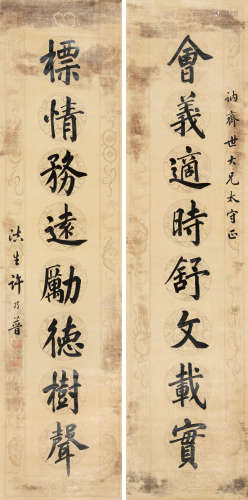 訥齋世大兄太守正
會義適時舒文載實
標情務遠勵德樹聲
滇生許乃普